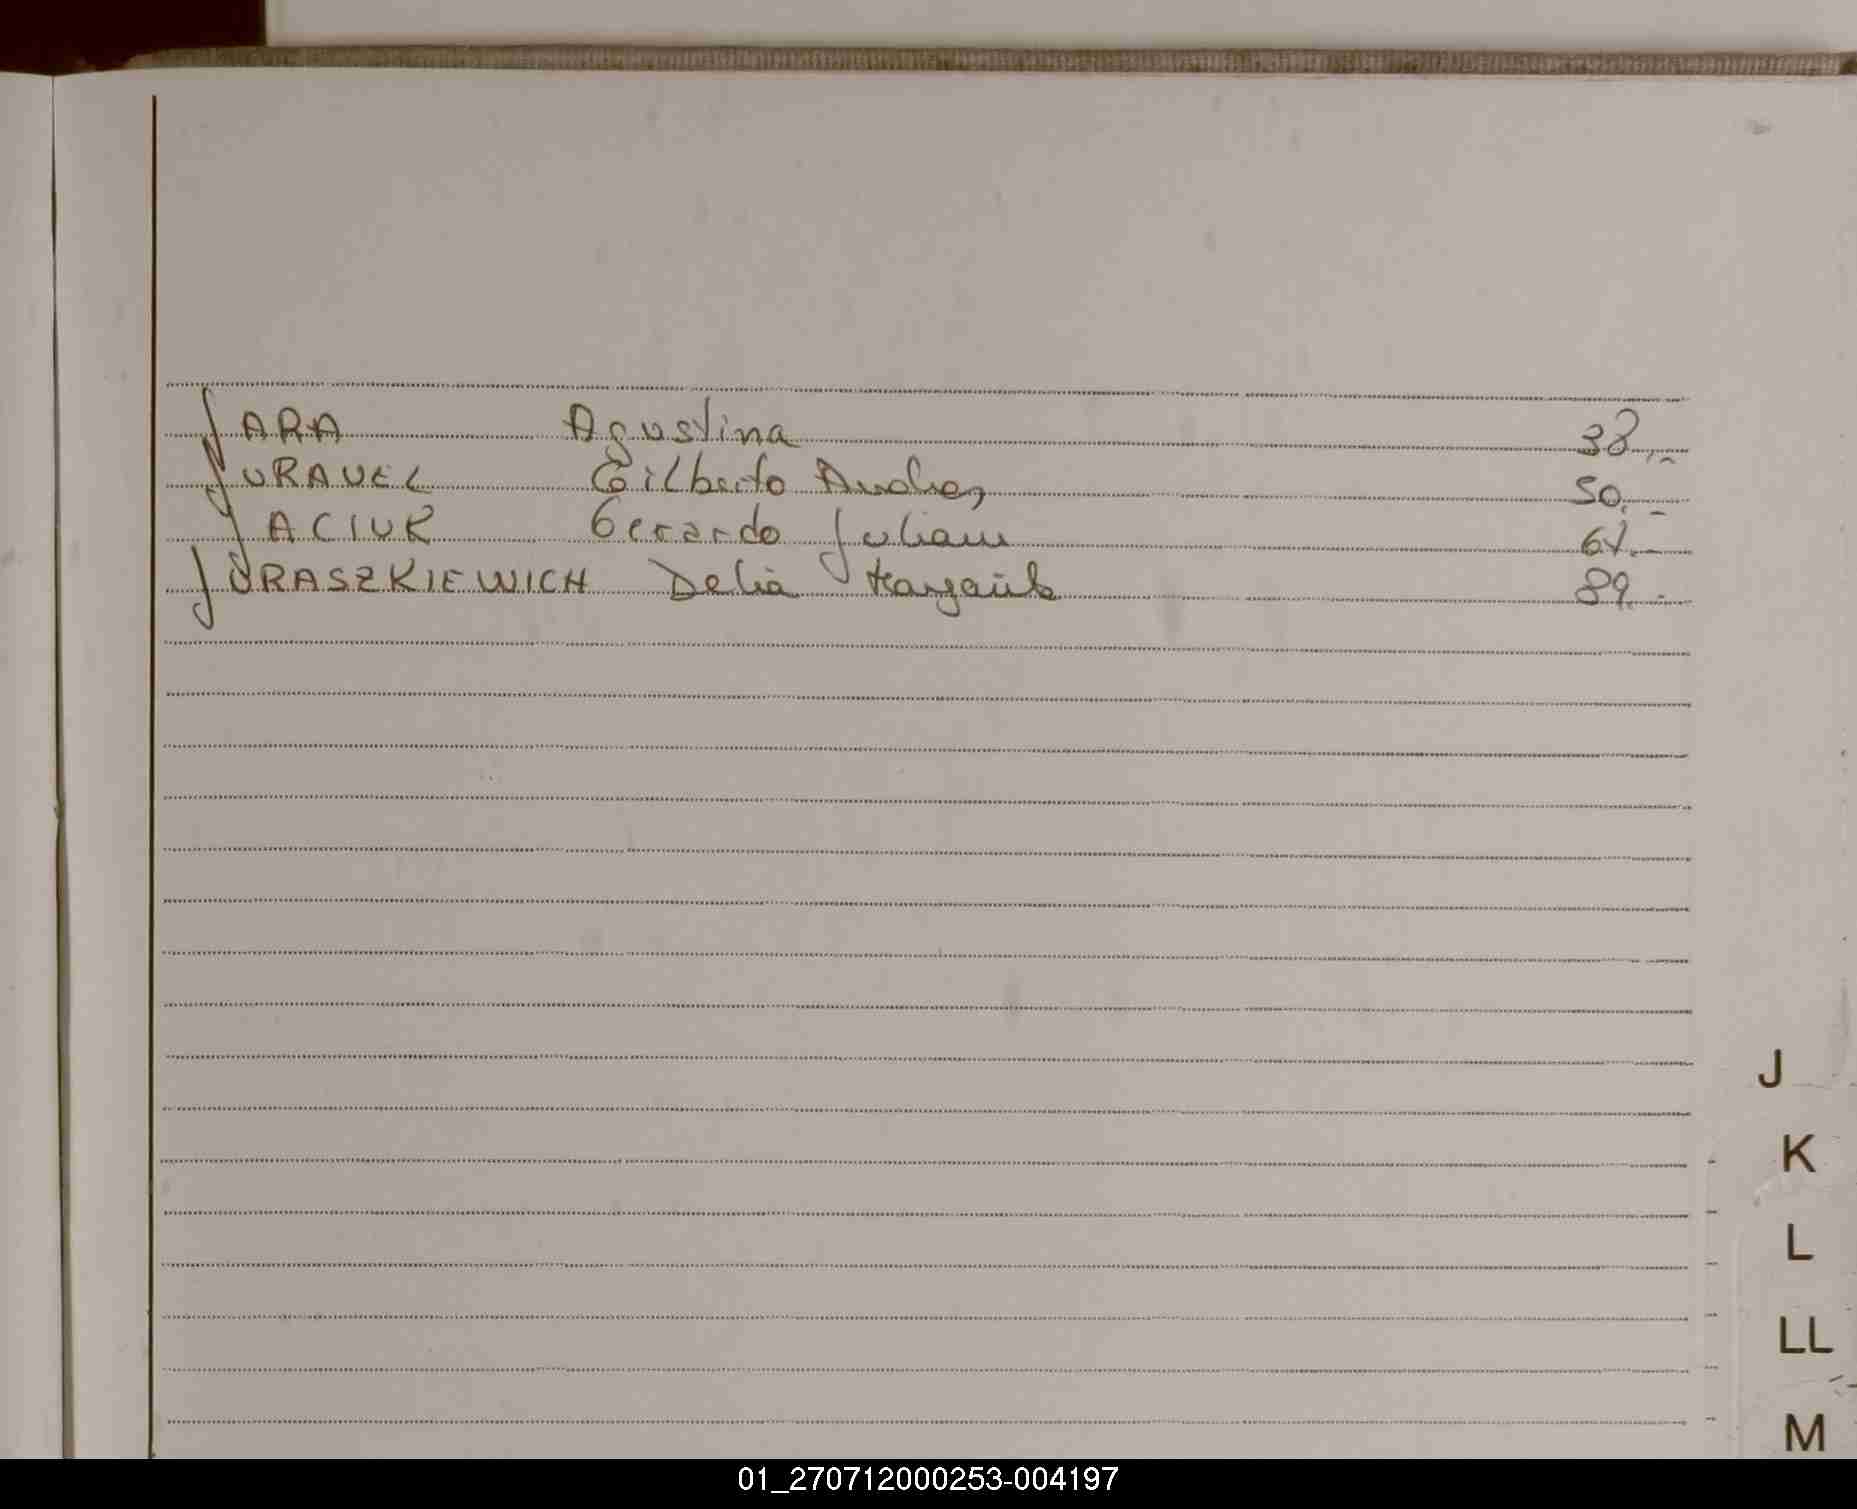 JARA Agustina 38.-
JURAVEL Gilberto Andres 50.-
JACIUR Gerardo Julian 61.-
JURASZKIEWICH Delia 89.-
J
K
L
LL
M
01_270712000253-004197